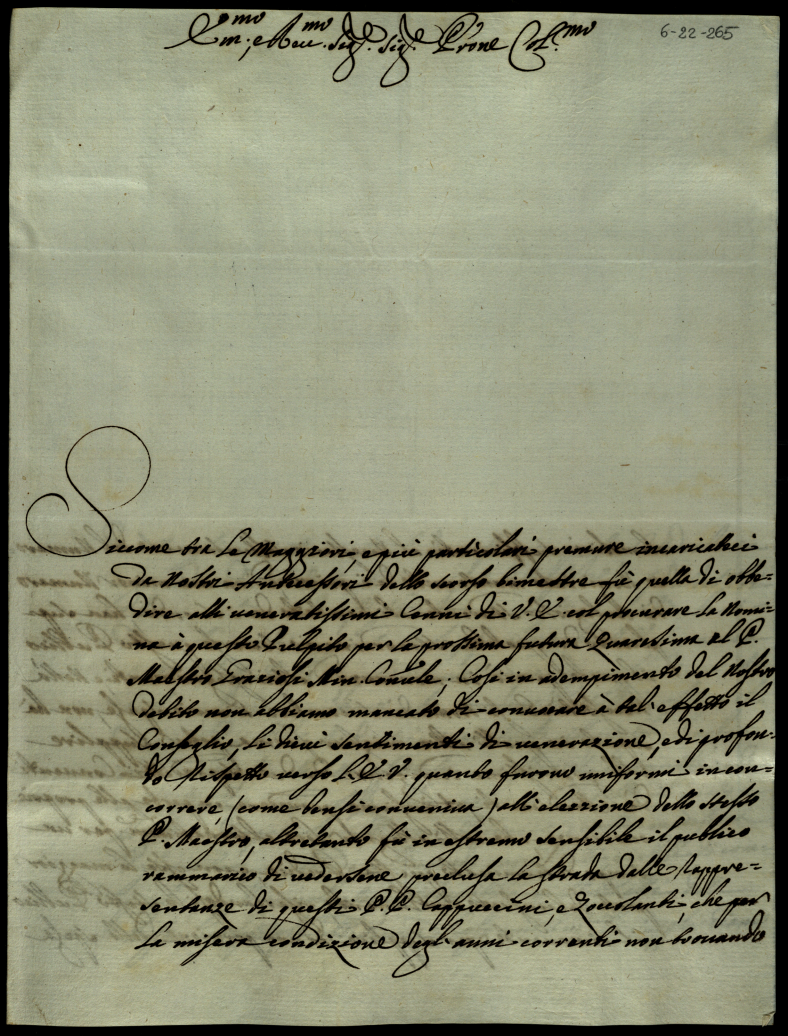 Em.mo, e Rev.mo Sig.r Sig.r P'rone Col.mo
6-22-265
Siccome tra le maggiori, e più particolari premure incaricateci
da nostri Antecessori dello scorso bimestre fù quella di obbe=
dire alli veneratissimi Cenni di V. E. col procurare la nomi=
na à questo Pulpito per la prossima futura Quaresima al P.
Maestro Graziosi Min. Con.le; Così in adempimento del nostro
debito non abbiamo mancato di convocare à tal effetto il
Conseglio, li di cui sentimenti di venerazione, e di profon=
do rispetto verso l'E. V. quanto furono uniformi in con=
correre, (come bensi conveniva) all'elezzione dello stesso
P. Maestro, altretanto fù in estremo sensibile il publico
rammarico di vedersene preclusa la strada dalle rappre=
sentanze di questi P. P. Cappuccini, e Zoccolanti, che per
la misera condizione degl'anni correnti non trovando